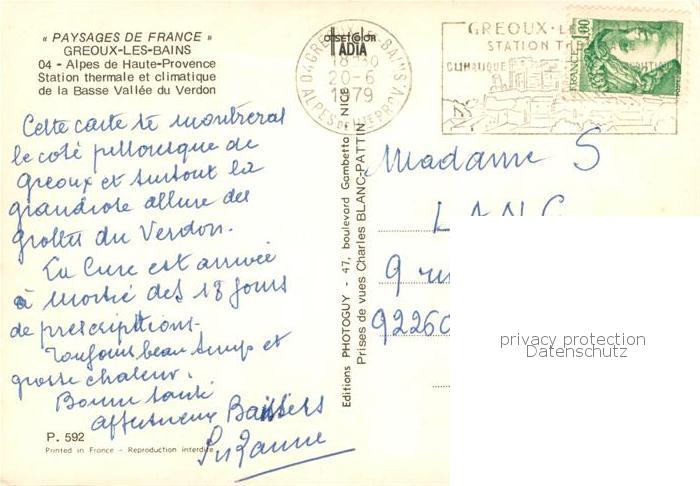 « PAYSAGES DE FRANCE »
GREOUX-LES-BAINS
04 - Alpes de Haute-Provence
Station thermale et climatique
de la Basse Vallée du Verdon
Cette carte te montrerai
le coté pittoresque de
Greoux et surtout la
grandiose allure des
grottes du Verdon.
La Cure est arrivée
à moitié des 18 jours
de prescriptions.
Toujours beau temps et
grosse chaleur.
Bonne santé
affectueux Baisers
Suzanne
P. 592
Printed in France - Reproduction interdite
Editions PHOTOGUY - 47, boulevard Gambetta - NICE
Prises de vues Charles BLANC-PATTIN
OFFSETCOLOR
IADIA
04 GREOUX-LES-BAINS
18-30
20-6
1979
ALPES DE HTE PROV.
GREOUX-LE
STATION THE
CLIMATIQUE
FRANCE 1,00
Madame S
LANG
9 rue
92260
privacy protection
Datenschutz